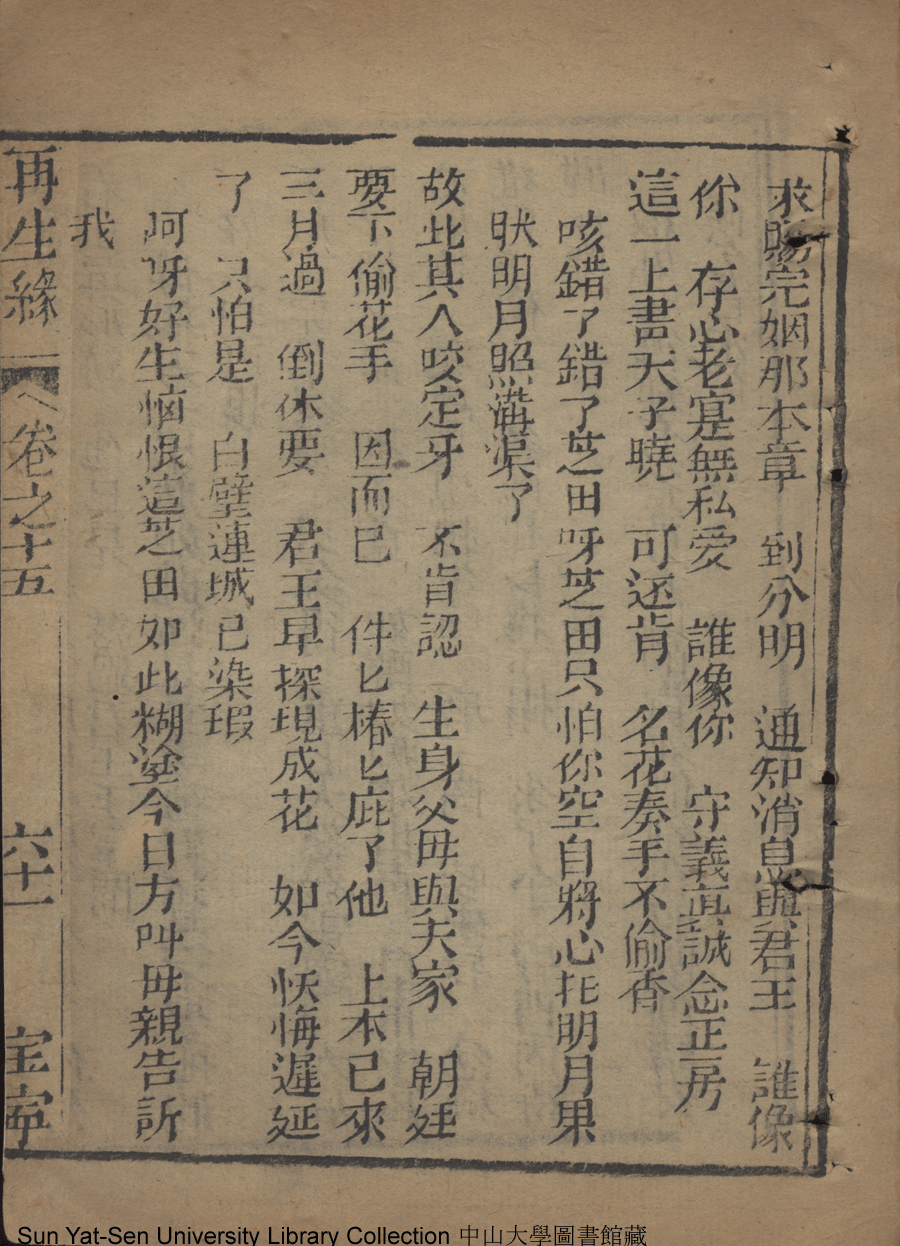 求賜完姻那本章　到分明　通知消息與君王　誰像
你　存心老寔無私愛　誰像你　守義真誠念正房
這一上書天子曉　可还肯　名花奏手不偷香
咳錯了錯了芝田呀芝田只怕你空自將心托明月果
肰明月照溝渠了
故此其人咬定牙　不肯認　生身父毋與夫家　朝廷
要下偷花手　因而巳　件匕樁匕庇了他　上本已來
三月過　倒休要　君王早探現成花　如今恹悔遲延
了　只怕是　白璧連城已染瑕
阿呀好生惱恨這芝田如此糊塗今日方叫毋親告訴
我
再生緣　卷之十五　六十一　宝寧
Sun Yat-Sen University Library Collection 中山大學圖書館藏